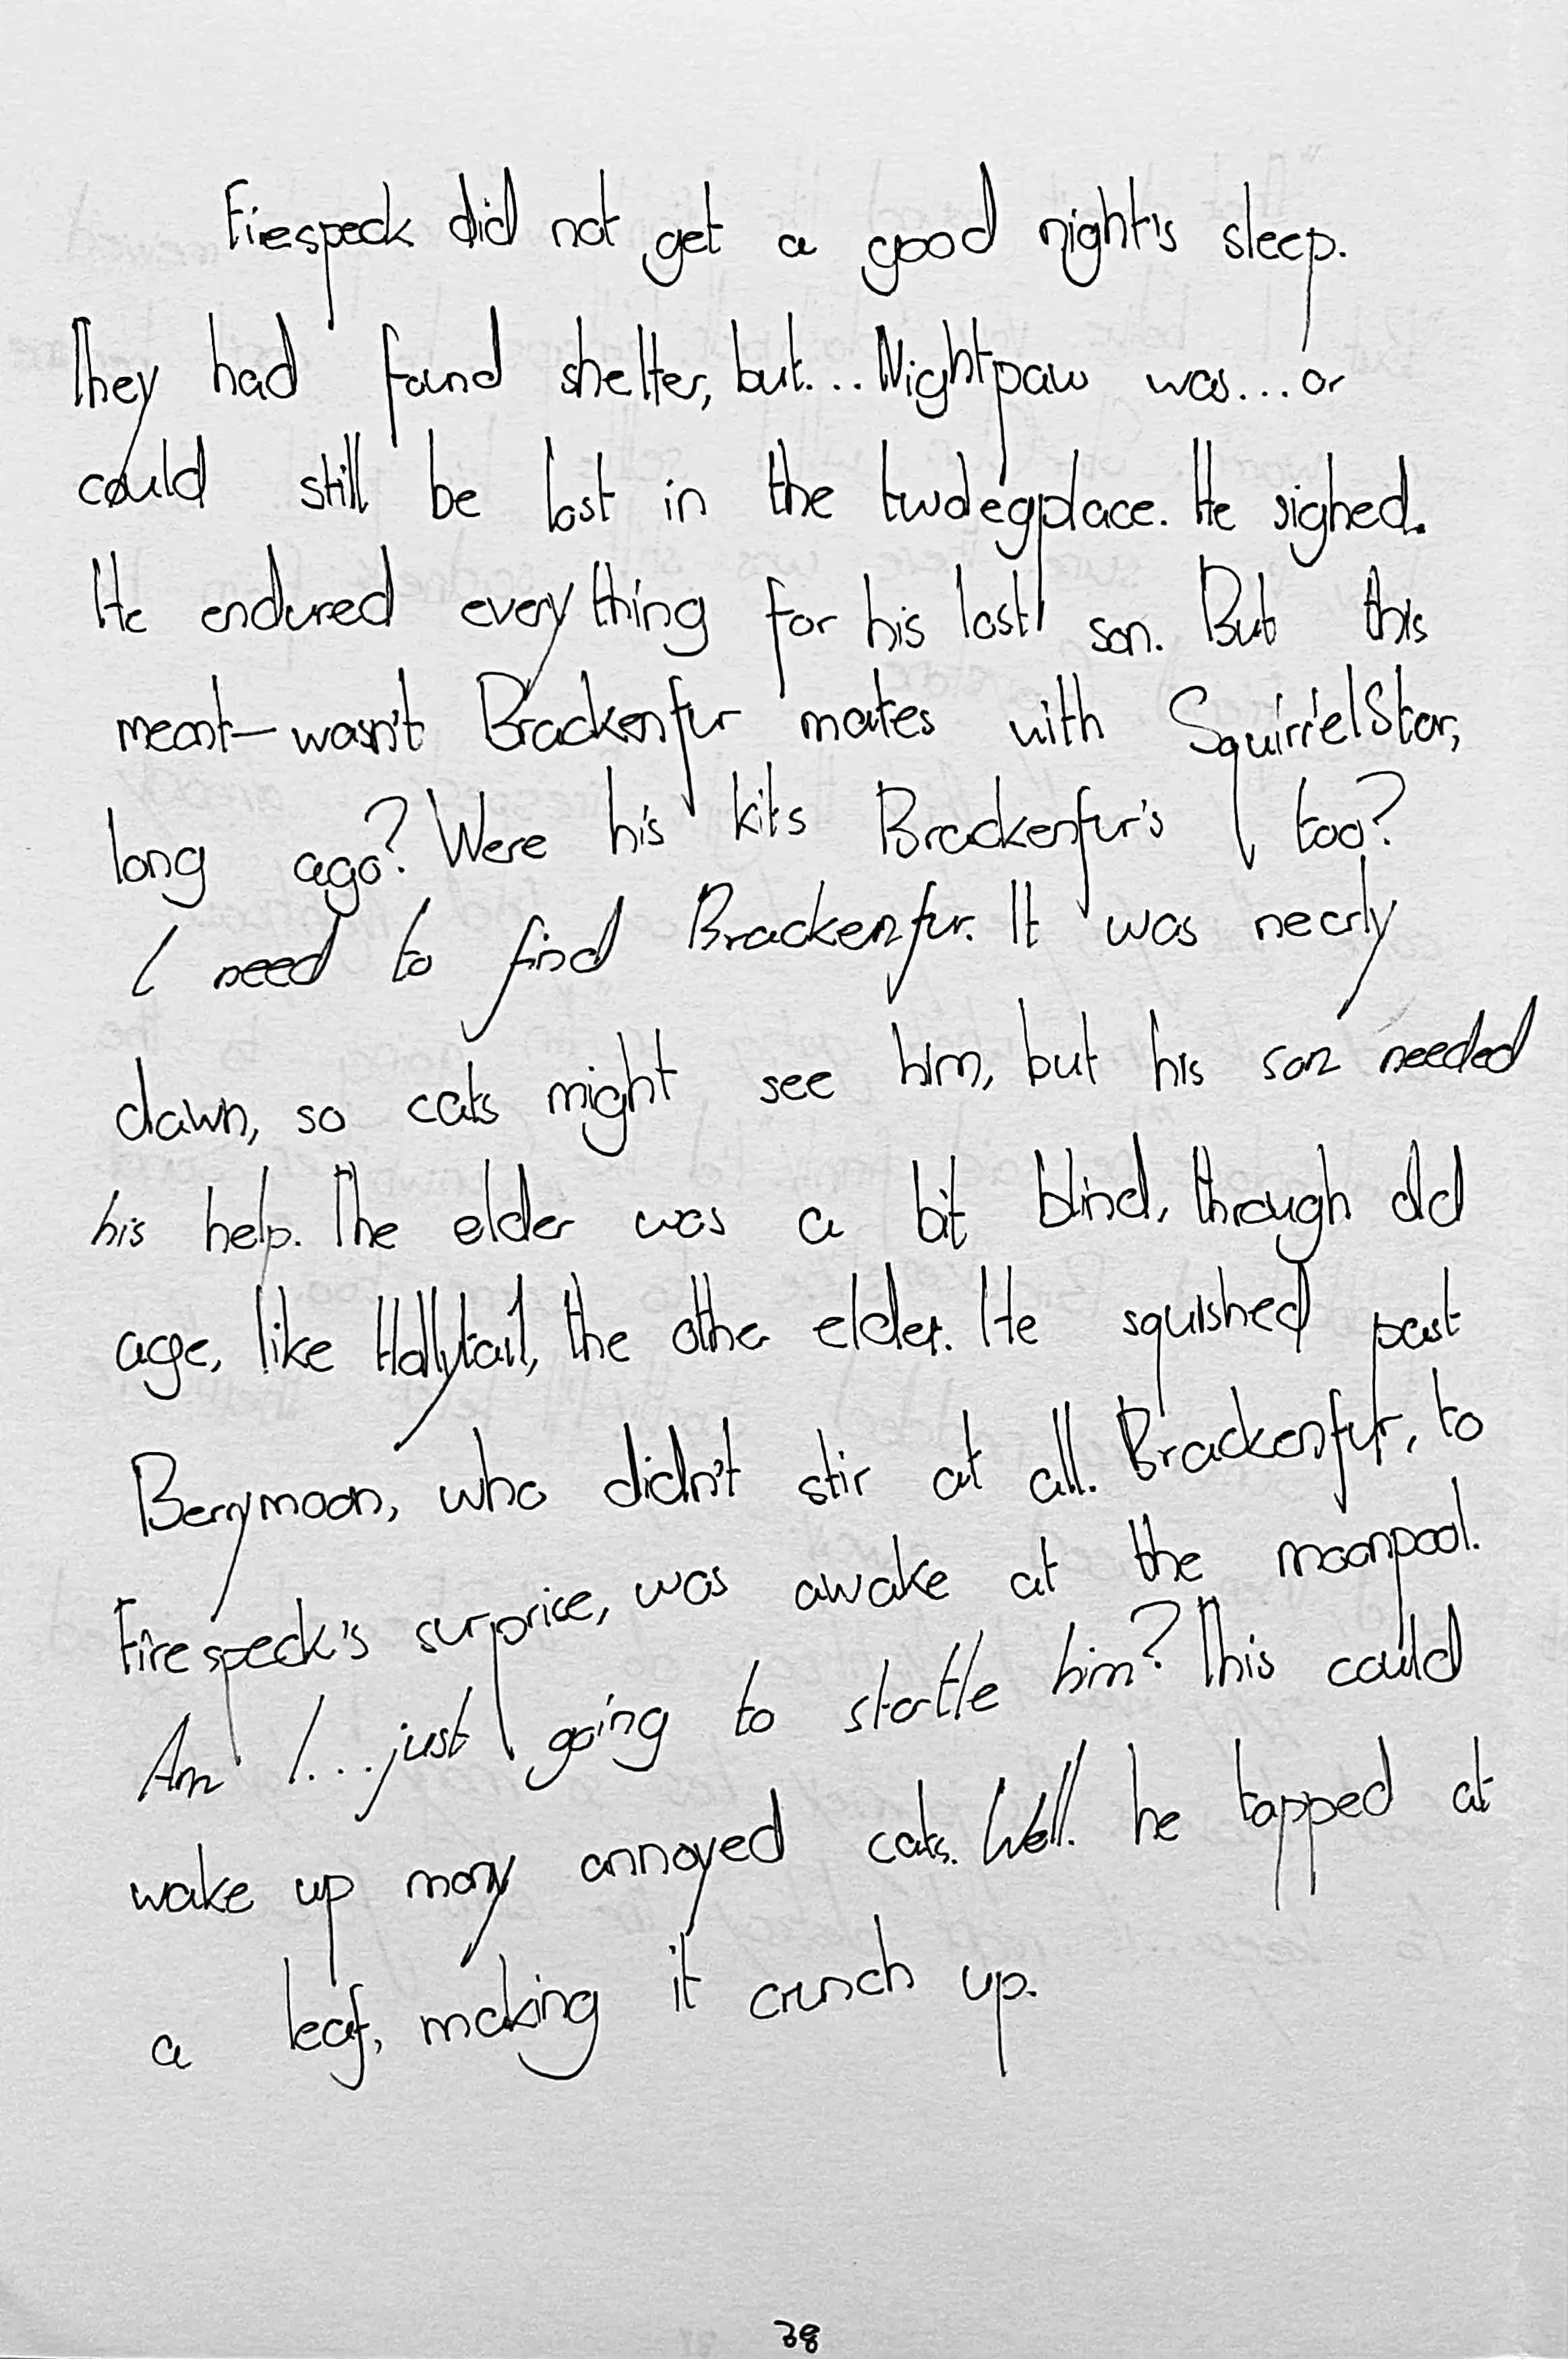 Firespeck did not get a good night's sleep.
They had found shelter, but... Nightpaw was... or
could still be lost in the twolegplace. He sighed.
He endured everything for his lost son. But this
meant—wasn't Brackenfur mates with SquirrelStar,
long ago? Were his kits Brackenfur's too?
I need to find Brackenfur. It was nearly
dawn, so cats might see him, but his son needed
his help. The elder was a bit blind, through old
age, like Hollytail, the other elder. He squished past
Berrymoon, who didn't stir at all. Brackenfur, to
Firespeck's surprise, was awake at the moonpool.
Am I... just going to startle him? This could
wake up many annoyed cats. Well. he tapped at
a leaf, making it crunch up.
38